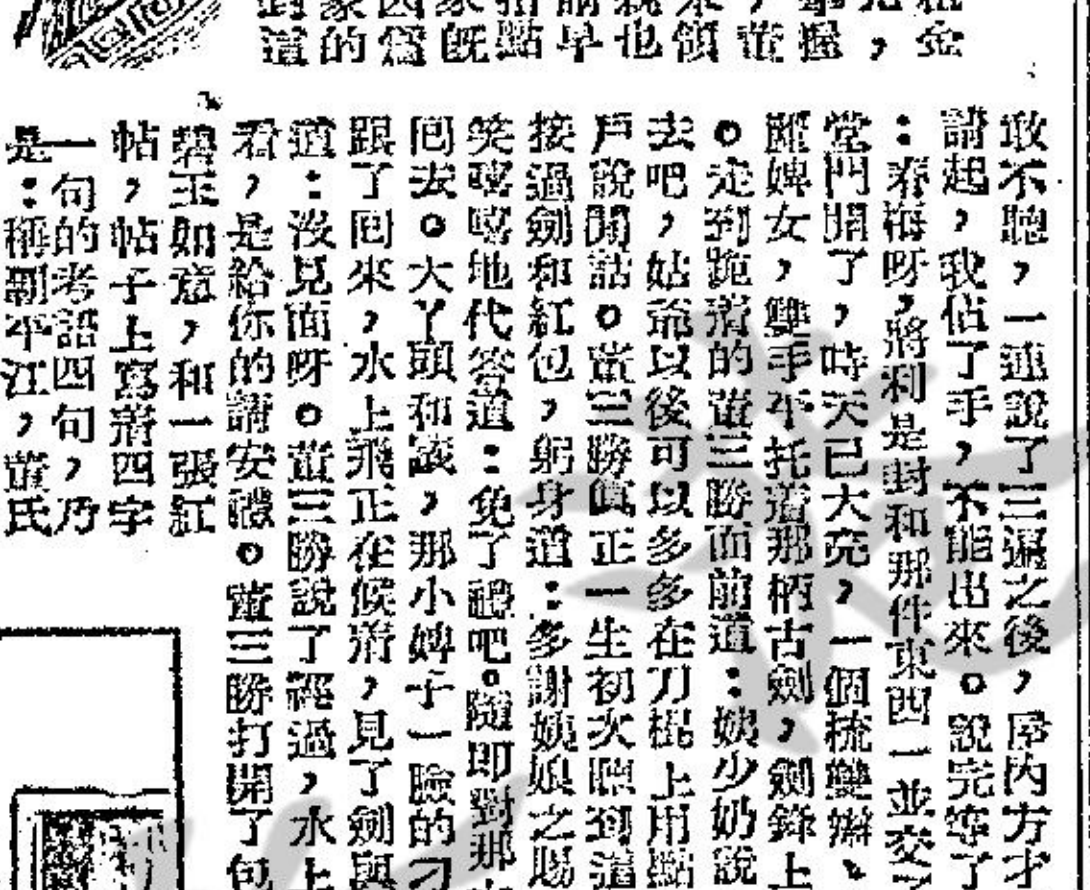 敢不聽，一連說了三遍之後，屋內方才
請起，我佔了手，不能出來。說完寧了
：春梅呀，將利是封和那件東西一並交
堂門開了，時天已大亮，一個梳雙辮、
麗婢女，雙手平托着那柄古劍，劍鋒上
。走到跪着的董三勝面前道：姨少奶說
去吧，姑爺以後可以多多在刀棍上用點
戶說閒話。董三勝眞正一生初次聽到這
接過劍和紅包，躬身道：多謝姨娘之賜
笑嘻嘻地代答道：免了禮吧。隨即對那
回去。大丫頭和該，那小婢子一臉的刁
跟了回來，水上飛正在候着，見了劍與
道：沒見面呀。董三勝說了經過，水上
看，是給你的請安禮。董三勝打開了包
碧玉如意，和一張紅
帖，帖子上寫着四字
一句的考語四句，乃
是：稱霸平江，董氏
金
，
握
董
領
也
早
點
既
寫
的
道